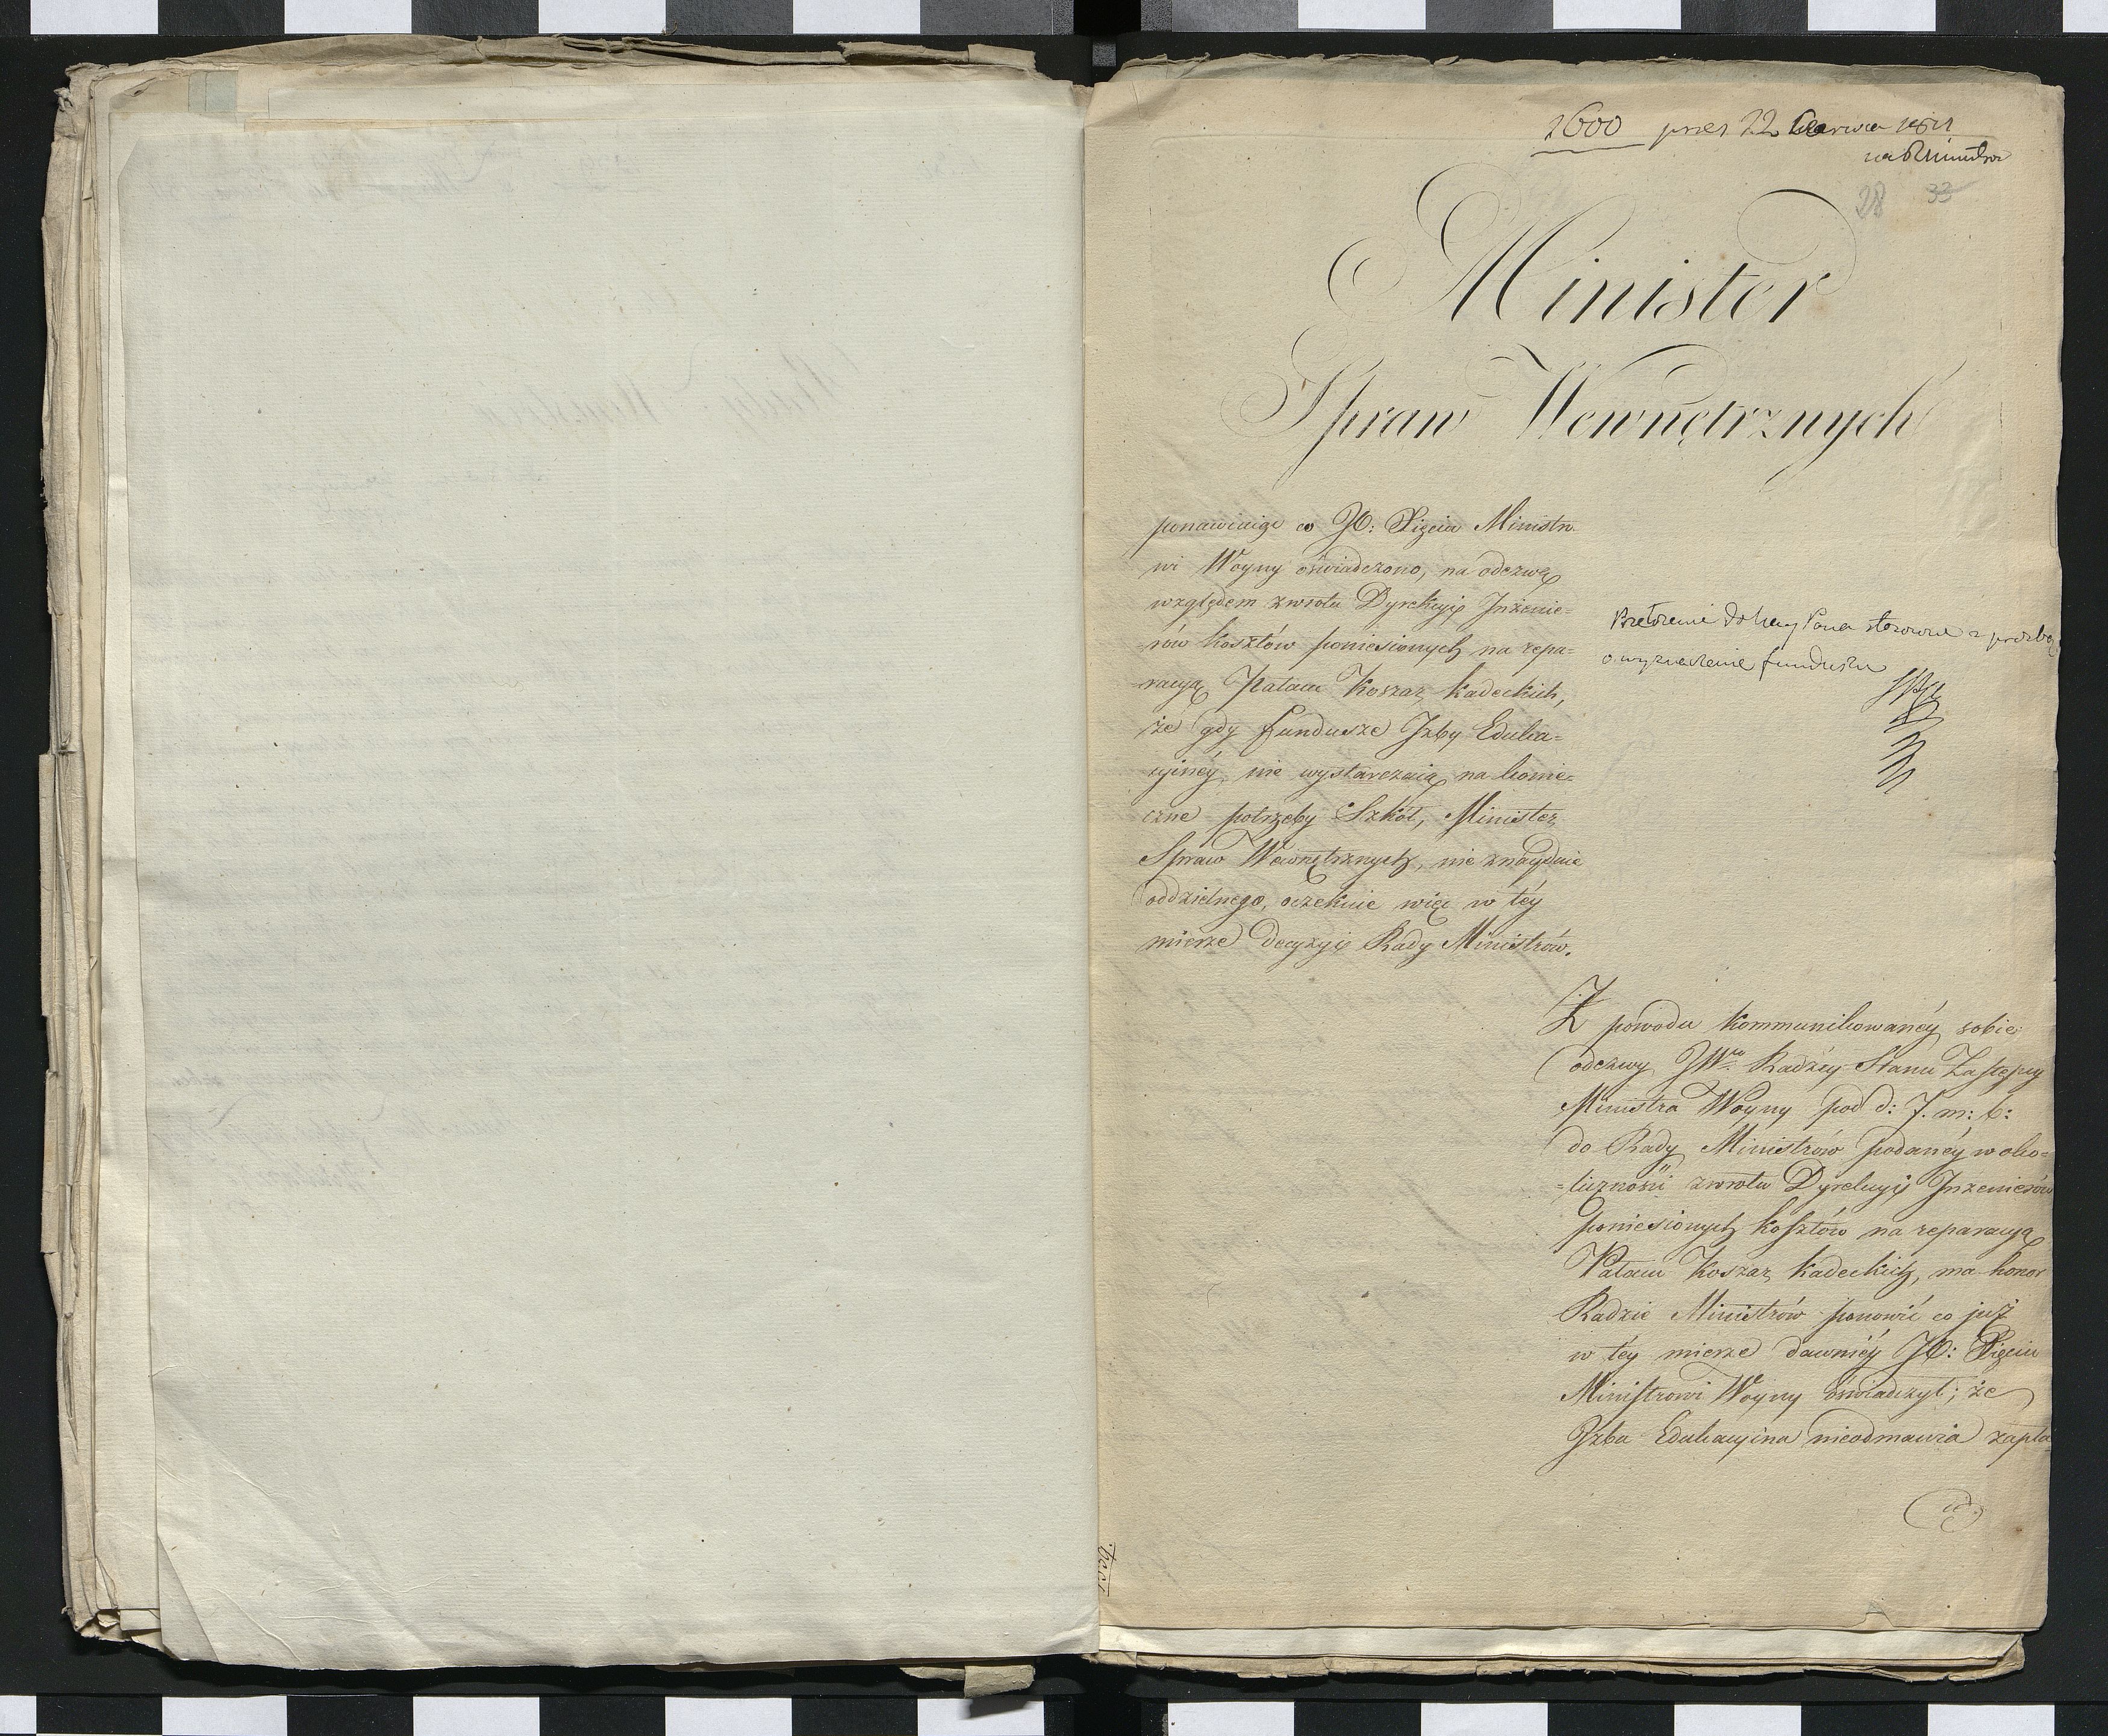 1600 prez 22 Czerwca 1811
na R Ministrów
28 33
Minister
Spraw Wewnętrznych
ponawiaiąc co JO: Xięciu Ministro
wi Woyny oświadczono, na odezwę
względem zwrotu Dyrekcyi Inżenie=
rów kosztów poniesionych na repa=
racyą Pałacu Koszar kadeckich,
że gdy fundusze Izby Eduka=
cyinéy, nie wystarczaią na konie=
czne potrzeby Szkół, Minister
Spraw Wewnętrznych, nie znayduie
oddzielnego, oczekuie więc w téy
mierze decyzyi Rady Ministrów.
Przełożenie do Nay Pana stosowne z prośbą
o wyznaczenie funduszu
Z powodu kommunikowanéy sobie
odezwy JWo Radzcy Stanu Zastępcy
Ministra Woyny pod d: 7. m: b:
do Rady Ministrów podanéy w oko=
=liczności zwrotu Dyrekcyi Inżenierów
poniesionych kosztów na reparacyą
Pałacu Koszar kadeckich, ma honor
Radzie Ministrów ponowić co już
w téy mierze dawniéy JO: Xięciu
Ministrowi Woyny oświadczył; że
Izba Edukacyina nieodmawia zapła=